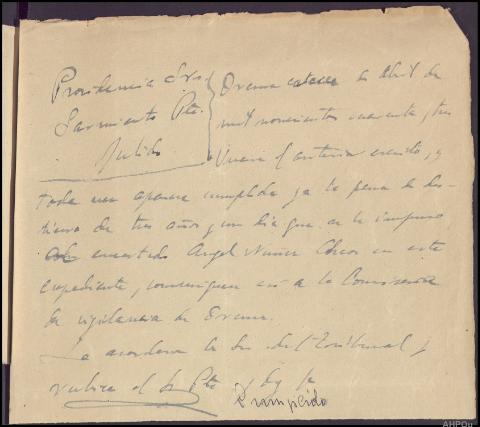 Providencia Srs.
Sarmiento Pte.
Pulido
Orense catorce de Abril de
mil novecientos cuarenta y tres
Unase el anterior escrito, y
toda vez aparece cumplida ya la pena de des-
tierro de tres años y un dia que se le impuso
al encartado Angel Nuñez en este
expediente, comuniquese así a la Comisaria
de vigilancia de Orense.
Lo acordaron los Srs. del Tribunal y
rubrica el Sr Pte y doy fe
Cumplido
AHPOu